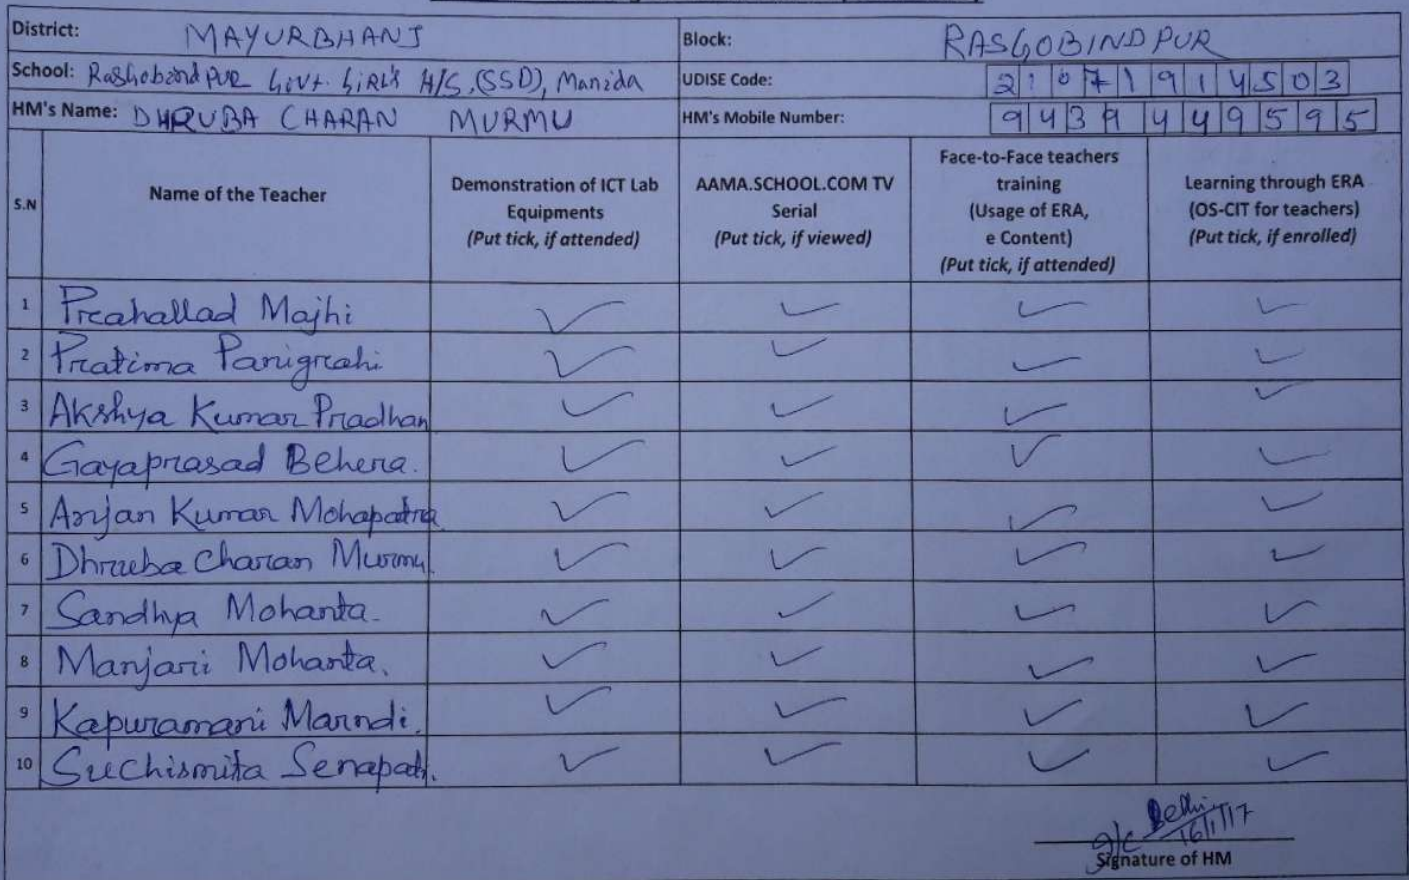 District: MAYURBHANJ Block: RASGOBINDPUR
School: Rashobindpur Govt. Girl's H/S, (SSD), Manida UDISE Code: 21071914503
HM's Name: DHRUBA CHARAN MURMU HM's Mobile Number: 9439449595
S.N Name of the Teacher Demonstration of ICT Lab Equipments (Put tick, if attended) AAMA.SCHOOL.COM TV Serial (Put tick, if viewed) Face-to-Face teachers training (Usage of ERA, e Content) (Put tick, if attended) Learning through ERA (OS-CIT for teachers) (Put tick, if enrolled)
1 Prahallad Majhi ✓ ✓ ✓ ✓
2 Pratima Panigrahi ✓ ✓ ✓ ✓
3 Akshya Kumar Pradhan ✓ ✓ ✓ ✓
4 Gayaprasad Behera. ✓ ✓ ✓ ✓
5 Anjan Kumar Mohapatra ✓ ✓ ✓ ✓
6 Dhruba Charan Murmu. ✓ ✓ ✓ ✓
7 Sandhya Mohanta. ✓ ✓ ✓ ✓
8 Manjari Mohanta. ✓ ✓ ✓ ✓
9 Kapuramani Marndi. ✓ ✓ ✓ ✓
10 Suchismita Senapati. ✓ ✓ ✓ ✓
16/1/17
Signature of HM